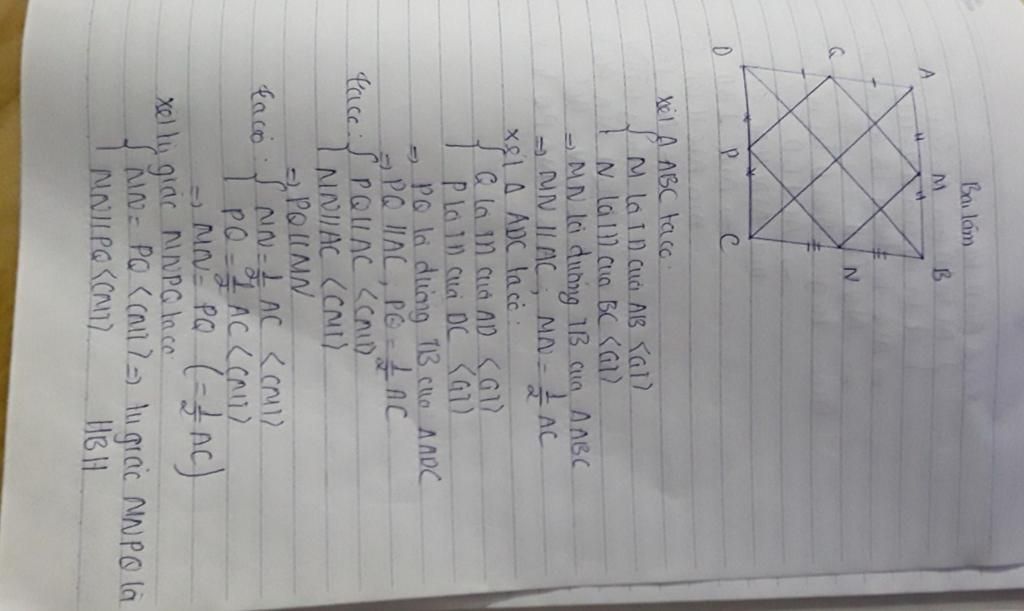 Bài làm
A M B
Q N
D P C
Xét Δ ABC ta có:
{ M là TĐ của AB <GT>
{ N là TĐ của BC <GT>
=> MN là đường TB của ΔABC
=> MN // AC ; MN = 1/2 AC
Xét Δ ADC ta có:
{ Q là TĐ của AD <GT>
{ P là TĐ của DC <GT>
=> PQ là đường TB của ΔADC
=> PQ // AC , PQ = 1/2 AC
Ta có: { PQ // AC <CMT>
{ MN // AC <CMT>
=> PQ // MN
Ta có: { MN = 1/2 AC <CMT>
{ PQ = 1/2 AC <CMT>
=> MN = PQ (= 1/2 AC)
Xét tứ giác MNPQ ta có
{ MN = PQ <CMT> => tứ giác MNPQ là
{ MN // PQ <CMT> HBH